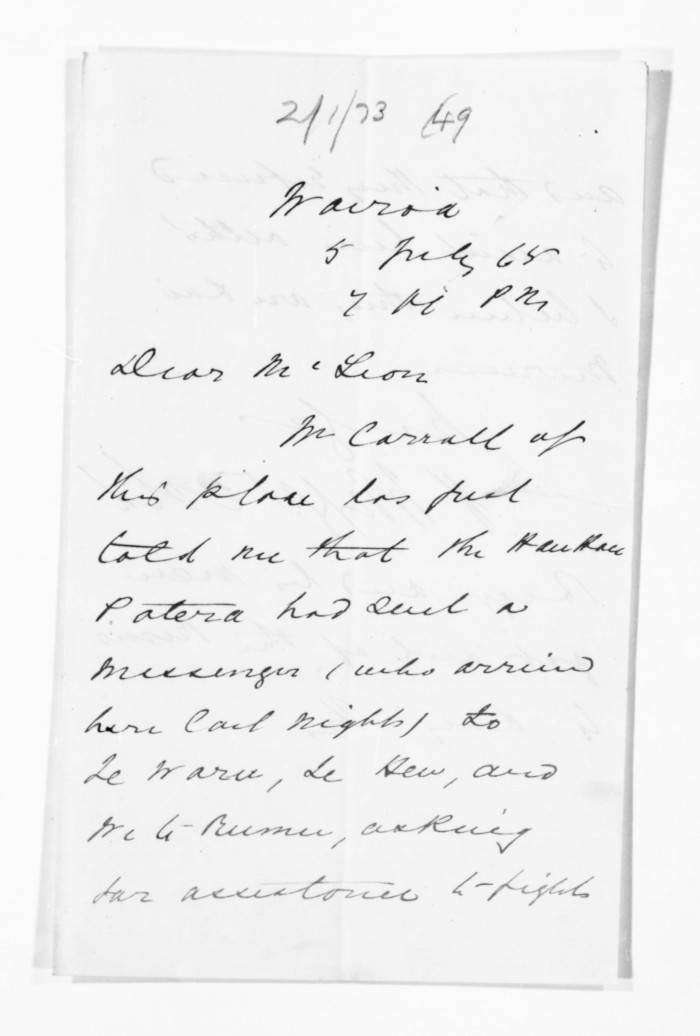 2/1/73 (49
Wairoa
5 July 65
7 PM
Dear McLean
Mr Carroll of
this place has just
told me that the HauHau
Patera had sent a
Messenger (who arrived
here last night) to
Te Waru, Te Heu, and
asking
for assistance to fight